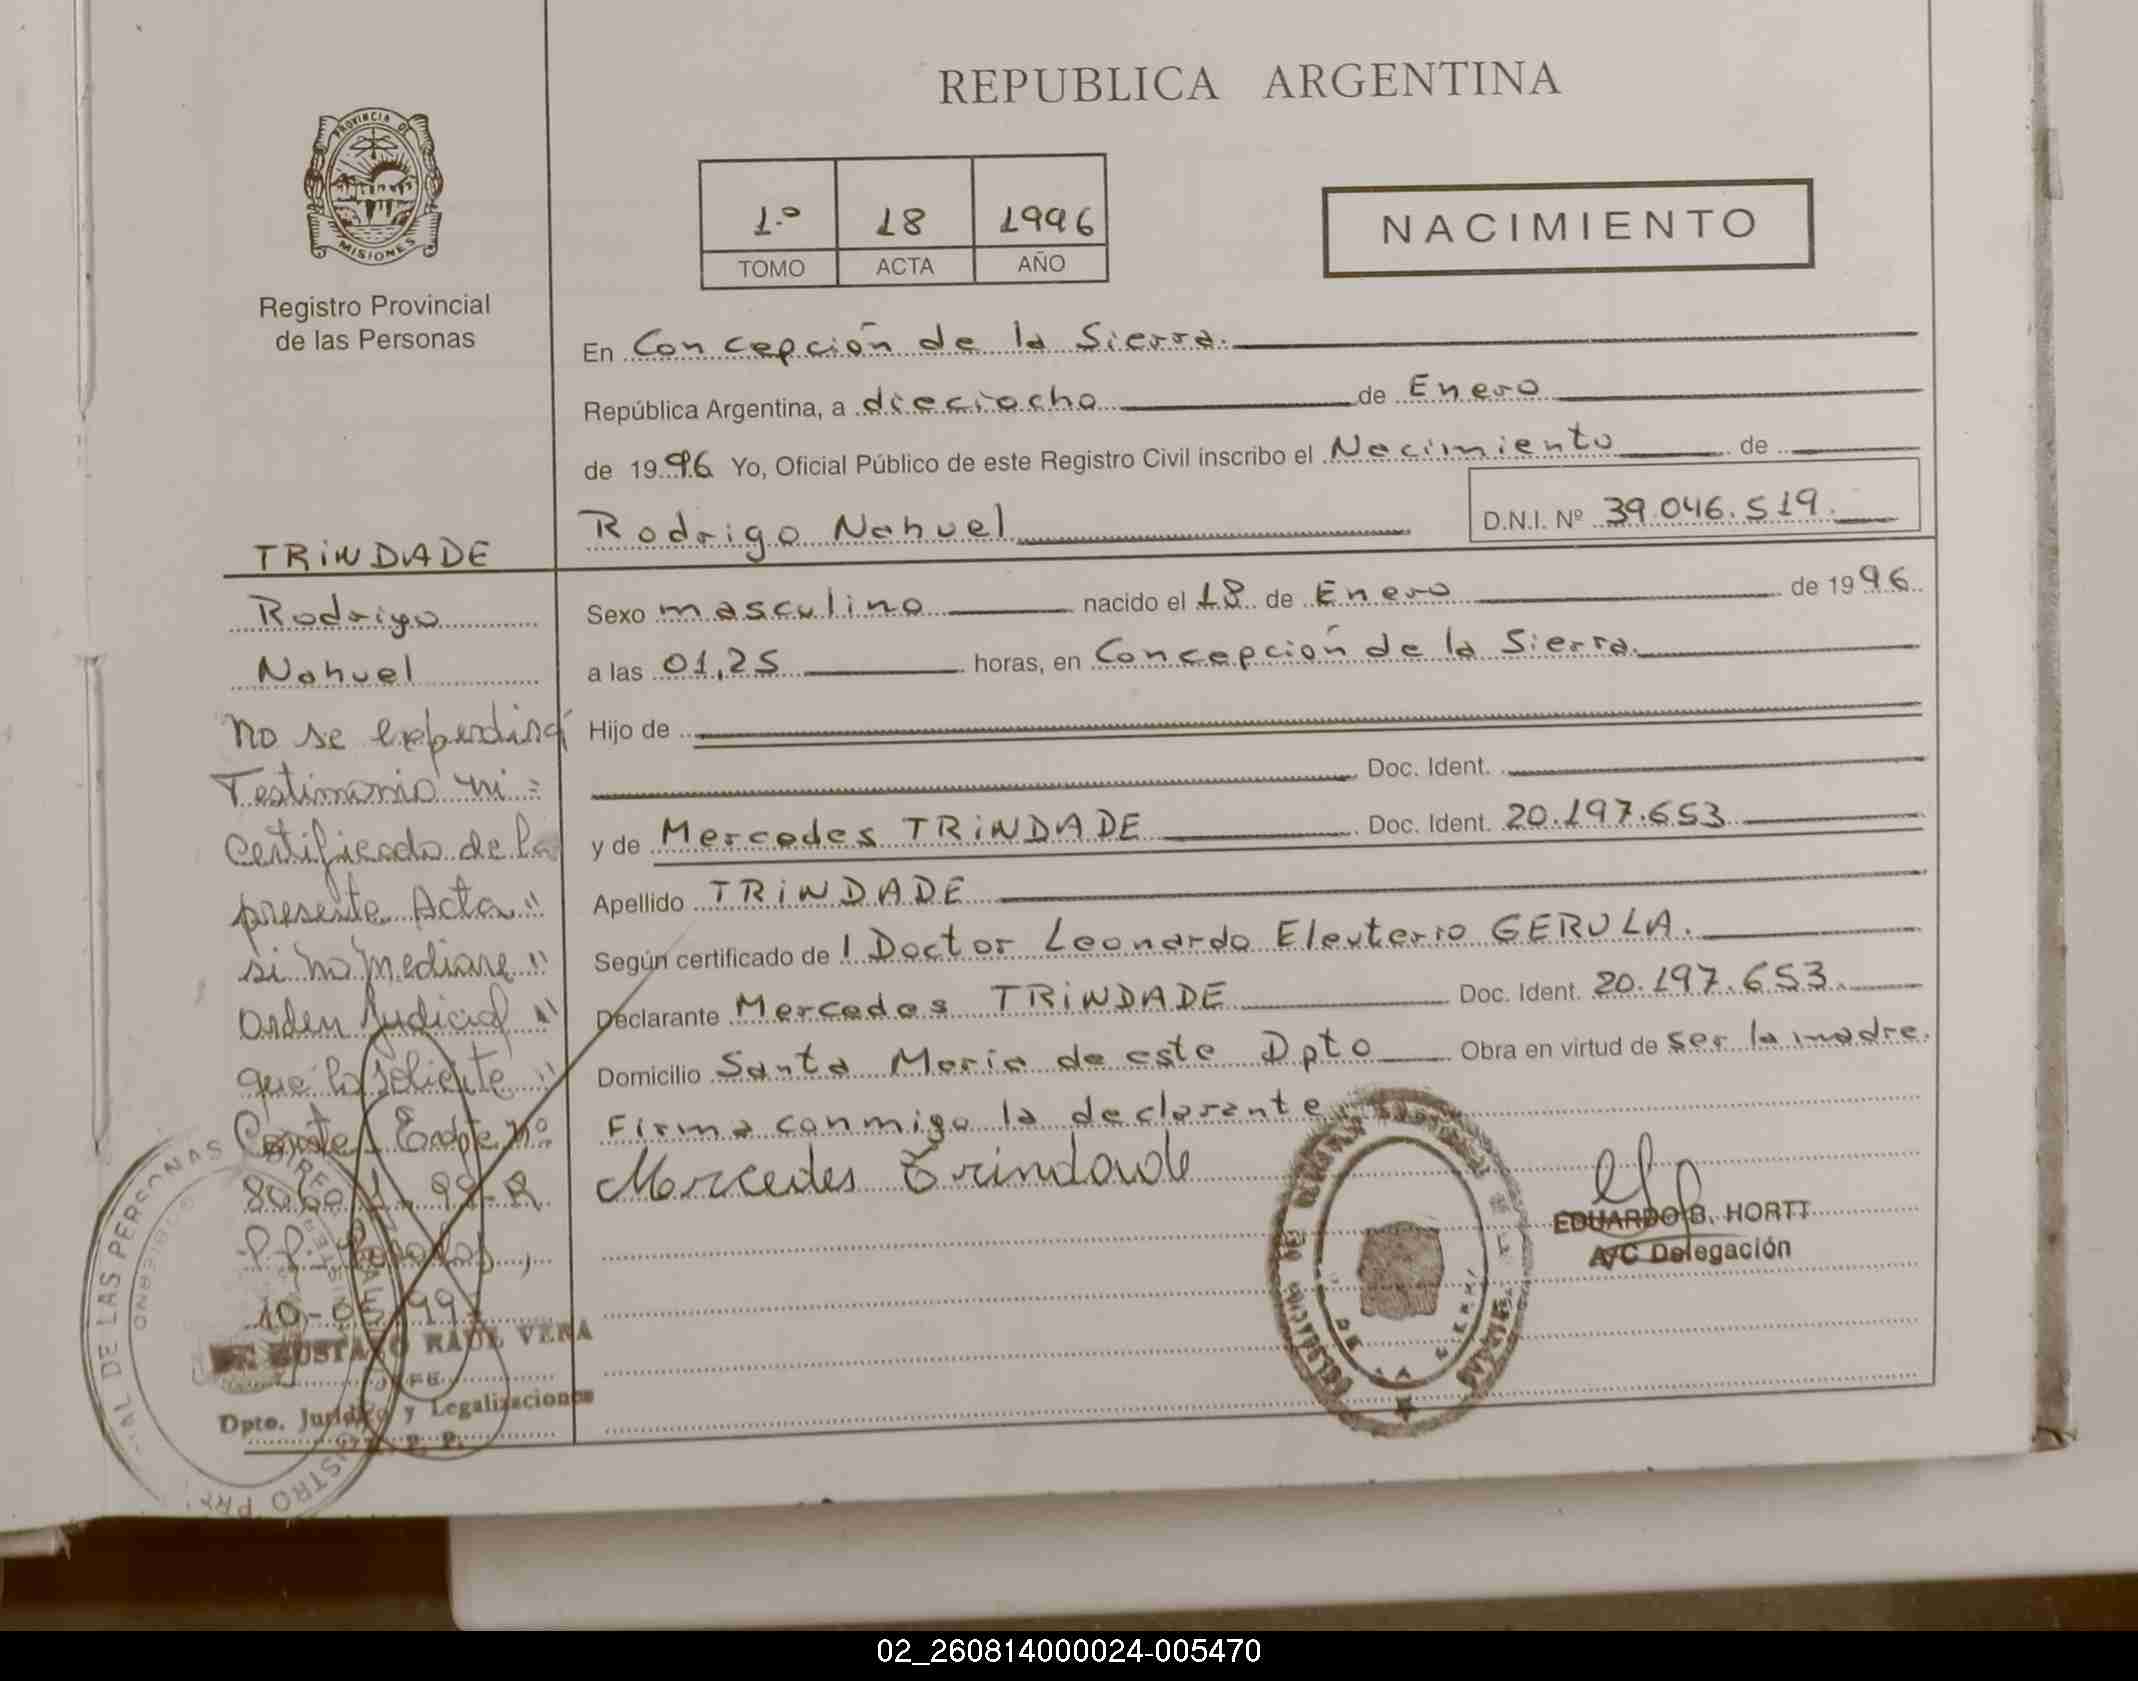 REPUBLICA ARGENTINA
PROVINCIA DE
MISIONES
Registro Provincial
de las Personas
1.º 18 1996
TOMO ACTA AÑO
NACIMIENTO
En Concepción de la Sierra.
República Argentina, a dieciocho de Enero
de 1996 Yo, Oficial Público de este Registro Civil inscribo el Nacimiento de
Rodrigo Nahuel
D.N.I. Nº 39.046.519.
TRiNDADE
Rodrigo
Nahuel
Sexo masculino nacido el 18 de Enero de 1996
a las 01,25 horas, en Concepción de la Sierra.
Hijo de
Doc. Ident.
y de Mercedes TRiNDADE Doc. Ident. 20.197.653
Apellido TRiNDADE
Según certificado de l Doctor Leonardo Eleuterio GERULA.
Declarante Mercedes TRiNDADE Doc. Ident. 20.197.653.
Domicilio Santa Maria de este Dpto Obra en virtud de ser la madre.
Firma conmigo la declarante
Mercedes Trindade
EDUARDO B. HORTT
A/C Delegación
No se expedirá
Testimonio ni =
Certificado de la
presente Acta "
si no mediare "
Orden Judicial "
que lo solicite "
Conste Expte nº
99-R
GUSTAVO RAUL VERA
JEFE
Dpto. Jurídico y Legalizaciones
R. P. P.
DE LAS PERSONAS
02_260814000024-005470